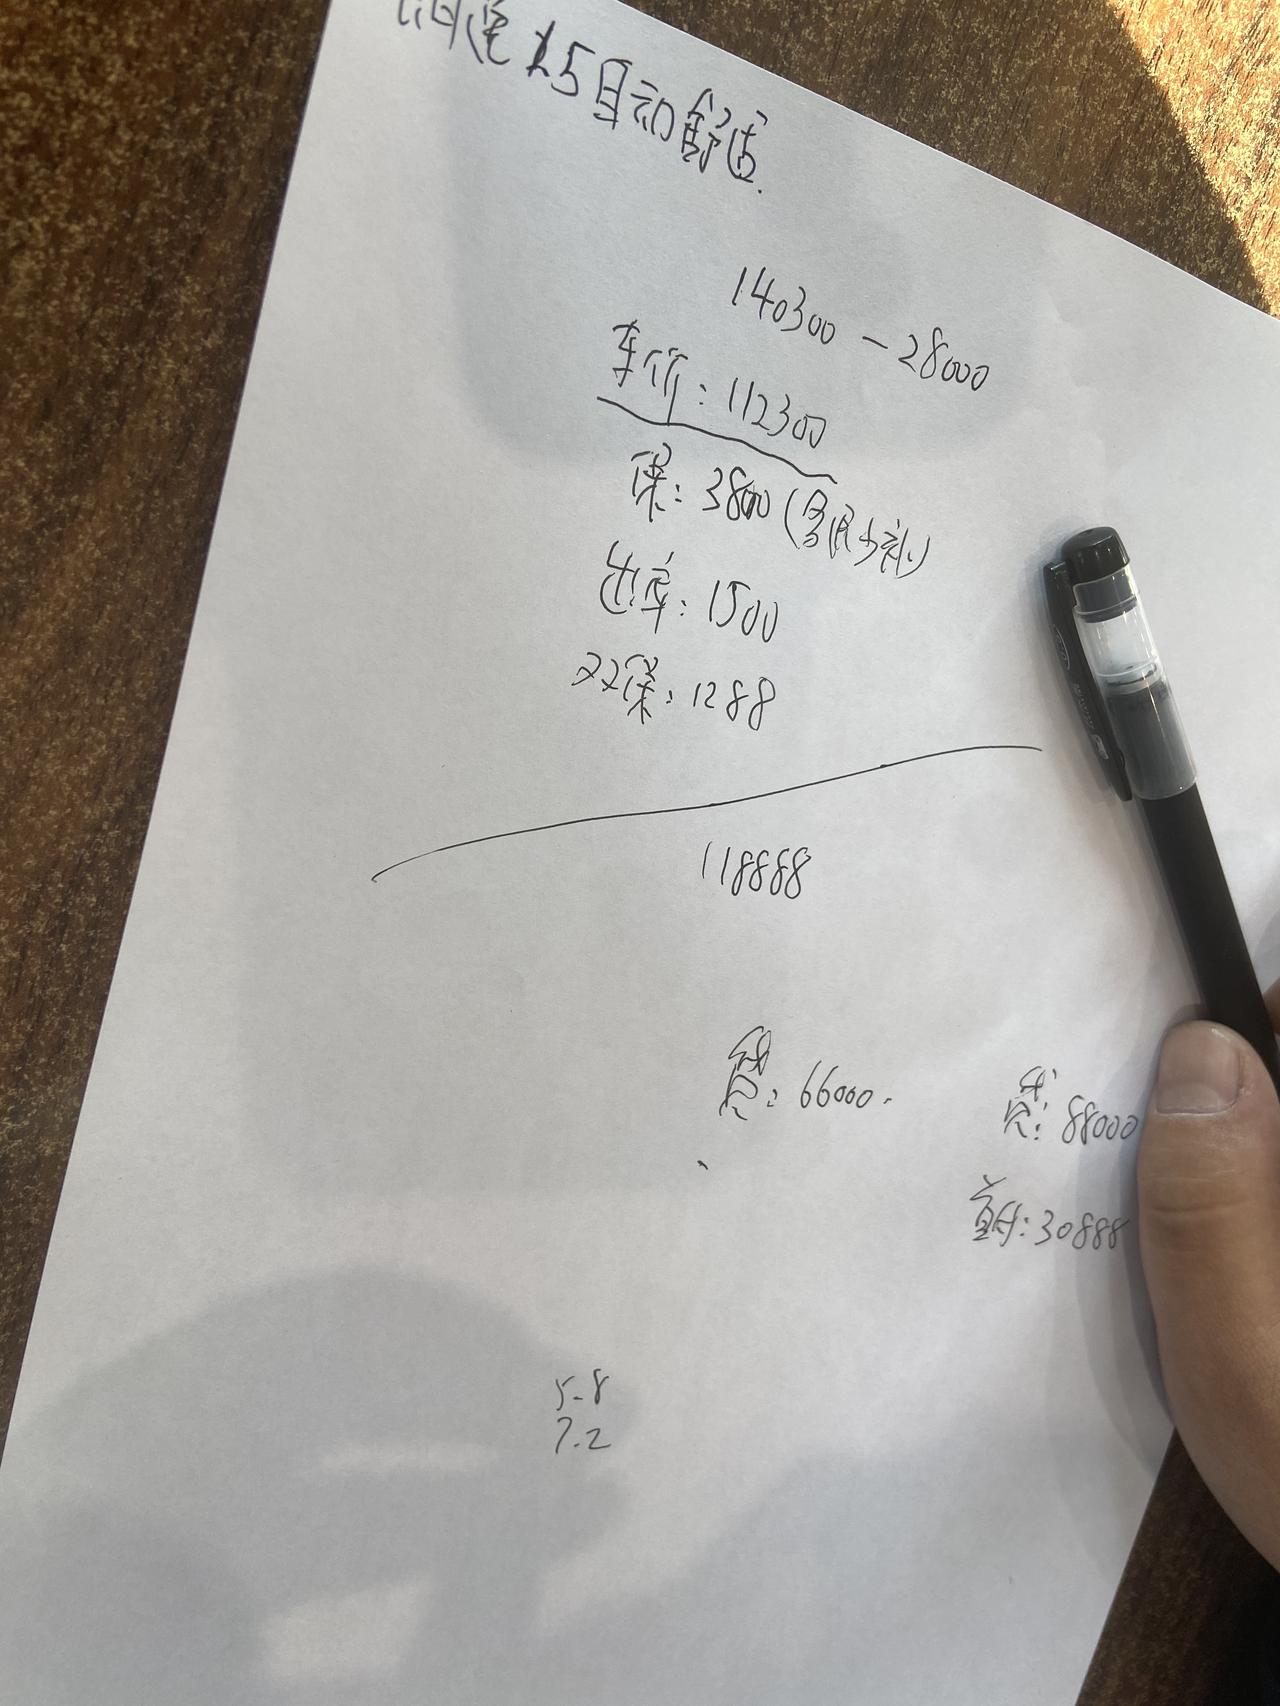 1.5自动舒适.
140300 - 28000
车价: 112300
保: 3800 (多退少补)
出库: 1500
双保: 1288
118888
贷: 66000.
贷: 88000
首付: 30888
5.8
7.2